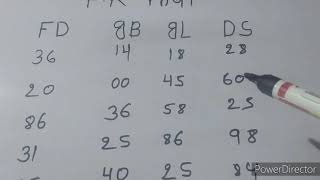 FD gB gL DS
36 14 18 28
20 00 45 60
86 36 58 25
31 25 86 98
40 25 84
PowerDirector